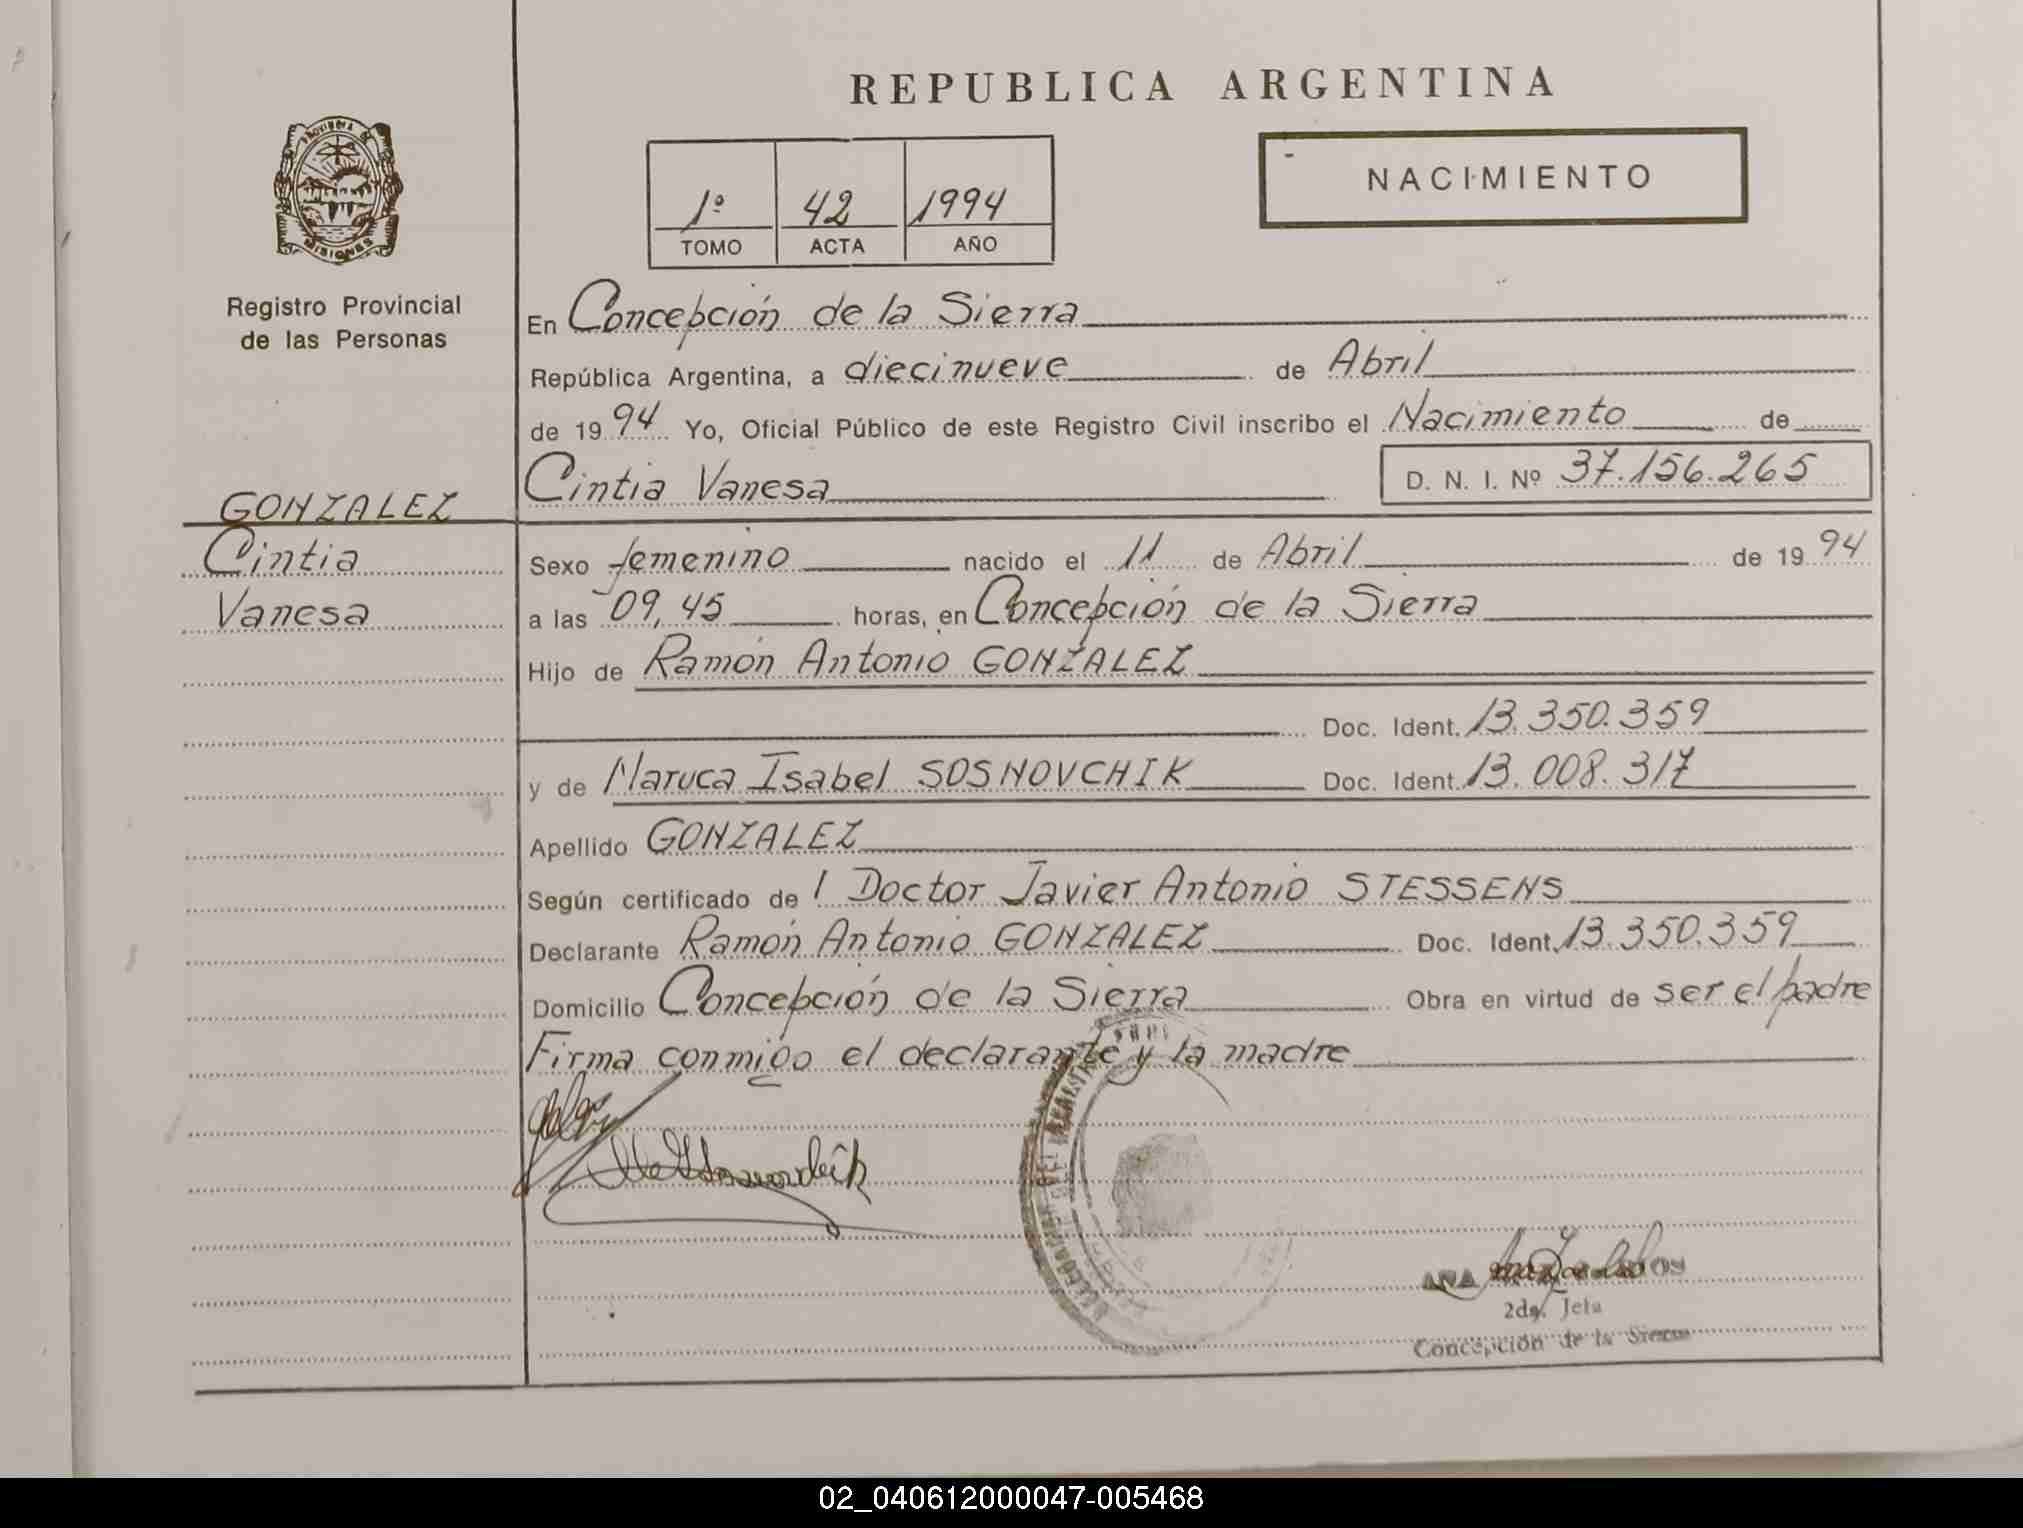 REPUBLICA ARGENTINA
PROVINCIA DE
MISIONES
Registro Provincial
de las Personas
1º 42 1994
TOMO ACTA AÑO
NACIMIENTO
En Concepción de la Sierra
República Argentina, a diecinueve de Abril
de 1994 Yo, Oficial Público de este Registro Civil inscribo el Nacimiento de
Cintia Vanesa D. N. I. Nº 37.156.265
GONZALEZ
Cintia
Vanesa
Sexo femenino nacido el 11 de Abril de 1994
a las 09,45 horas, en Concepción de la Sierra
Hijo de Ramón Antonio GONZALEZ
Doc. Ident. 13.350.359
y de Maruca Isabel SOSNOVCHIK Doc. Ident. 13.008.317
Apellido GONZALEZ
Según certificado de l Doctor Javier Antonio STESSENS
Declarante Ramón Antonio GONZALEZ Doc. Ident. 13.350.359
Domicilio Concepción de la Sierra Obra en virtud de ser el padre
Firma conmigo el declarante y la madre
ANA
2da. Jefa
Concepción de la Sierra
02_040612000047-005468